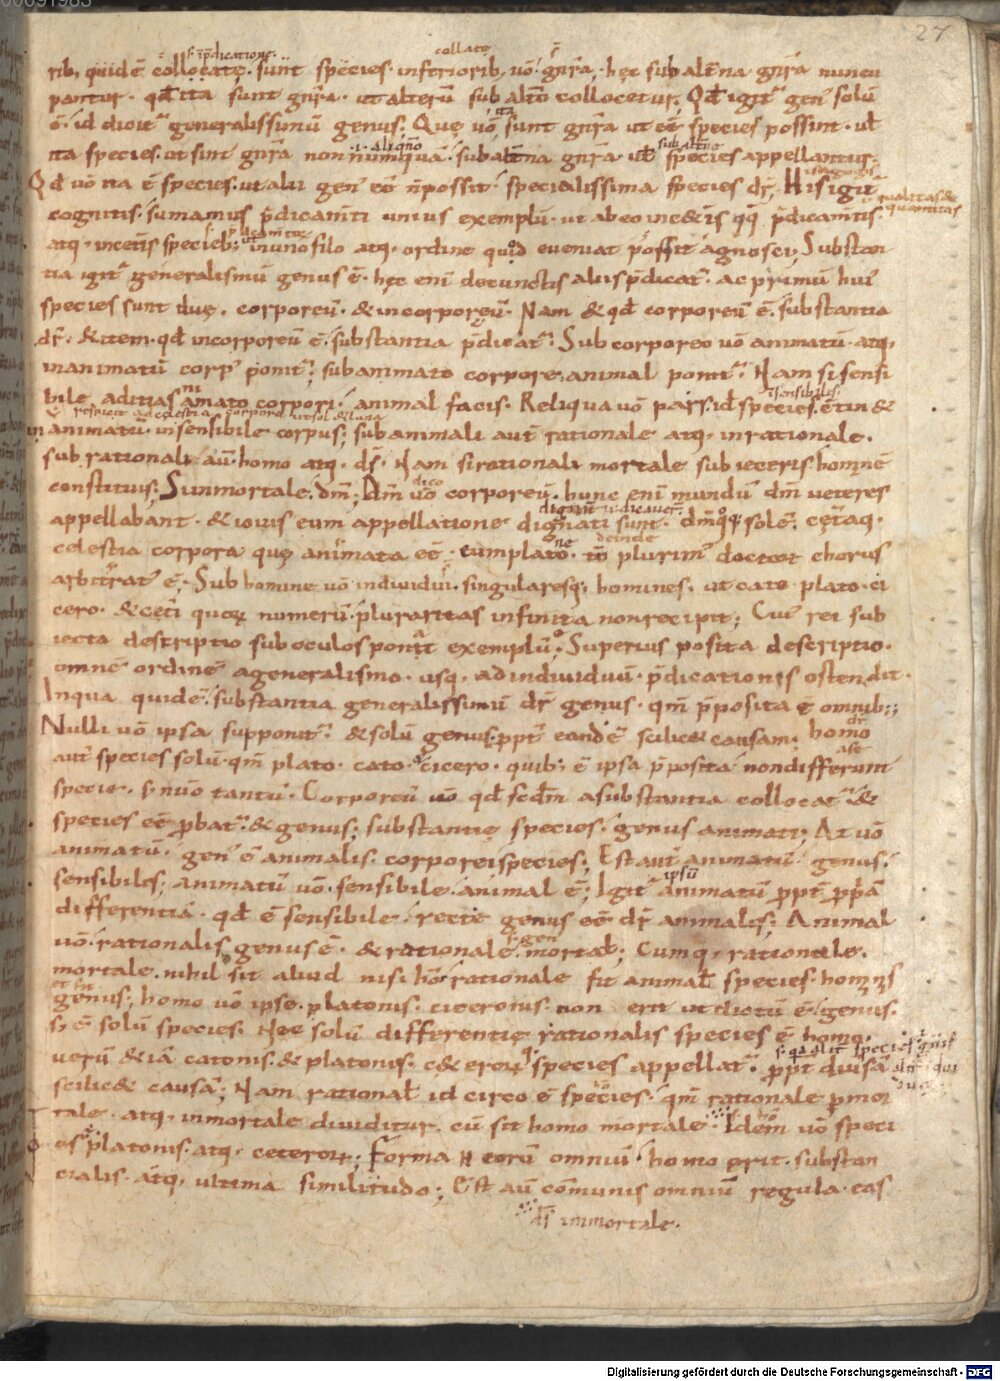 00091983
27
s. in p̄dicatione. collate
rib, quidē collocatę. sunt species. inferiorib, uō. gn̄ra. hęc subalt̄na gn̄ra nuncu
pantur. qđ ita sunt gn̄ra. ut alterū sub alt̄o collocetur. Qđ igit gen' solū
ē. id dicit' generalissimū genus; Quę uō ita sunt gn̄ra ut eē species possint. ut
.i. aliqn̄o subalt̄nę
ita species. ut sint gn̄ra non numquā. subalt̄na gn̄ra ut species appellantur.
Qđ uō ita ē species. ut alii gen' eē n̄possit. specialissima species dr̄. His igit'
qualitas &
quantitas
cognitis. sumamus p̄dicam̄ti unius exemplū. ut ab eo in cet̄is qq p̄dicam̄tis.
atq, in cet̄is specieb; in uno filo atq, ordine quid eueniat possit agnosci; Substan
tia igit' generalissimū genus ē. hęc eni' de cunctis aliis p̄dicat'. ac primū hui'
species sunt duę. corporeū. & incorporeū. Nam & qđ corporeū ē. substantia
dr̄. & item. qđ incorporeū ē. substantia p̄dicat'. Sub corporeo uō animatū. atq,
inanimatū corp' ponit'. sub animato corpore animal ponit'. Nam si sensi
insensibilis.
bile adicias animato corpori. animal facis. Reliqua uō pars. id ē species. c̄tin&
respicit ad celestia corpora ut sol. & luna
inanimatū. insensibile corpus; sub animali aut̄ rationale atq, inrationale.
sub rationali aū. homo atq, ds̄. Nam si rationali mortale subieceris. hominē
dico
constituis; Si inmortale. dm̄; Dm̄ uō corporeū. hunc eni' mundū dm̄ ueteres
appellabant. & iouis eum appellatione dignati sunt. dm̄qꝫ solē. cęt̄aq,
deinde
celestia corpora quę animata eē. cum plato. tū plurim' doctor chorus
arbitrat' ē; Sub homine uō indiuidui. singularesq; homines. ut cato plato. ci
cero. & cet̄i quorꝫ numerū. pluraritas infinita non recipit; Cui' rei sub
iecta descriptio sub oculos ponat exemplū; Superius posita descriptio.
omnē ordinē a generalismo. usq, ad indiuiduū. p̄dicationis ostendit.
In qua quidē. substantia generalissimū dr̄ genus. qm̄ p̄posita ē omnib;;
Nulli uō ipsa supponit'. & solū genus. ppt' eandē scilic& causam. homo
aut' species solū. qm̄ plato. cato. cicero. quib; ē ipsa p̄posita non differunt
specie. s; nūo tantū. Corporeū uō qđ scdm̄ a substantia collocat'. &
species eē pbat'. & genus; substantię species. genus animati; At uō
animatū. gen' ē animalis. corporei species; Est aut' animatū genus.
ipsū
sensibiles; animatū uō. sensibile. animal ē; Igit' animatū ppt̄ pp̄ā
differentiā. qđ ē sensibile. recte genus eē dr̄ animalis; Animal
s. gen'
uō. rationalis genus ē. & rationale. mortat; Cumq, rationale.
mortale. nihil sit aliud nisi hō. rationale fit animal species. hominis
genus; homo uō ipse. platonis. ciceronis. non erit ut dictū ē. genus.
s; ē solū species. Nec solū differentię rationalis species ē homo.
uerū & iā catonis. & platonis. c&erorꝫ species appellat'. ppt̄ diuersā
scilic& causā; Nam rational' id circo ē species. qm̄ rationale p mor
tale. atq, inmortale diuiditur. cū sit homo mortale. Idem uō speci
es platonis. atq, ceterorꝫ; Forma n̄ eorū omniū. homo erit. substan
cialis. atq, ultima similitudo; Est aū cōmunis omniū regula. eas
ds̄ immortale.
Digitalisierung gefördert durch die Deutsche Forschungsgemeinschaft - DFG